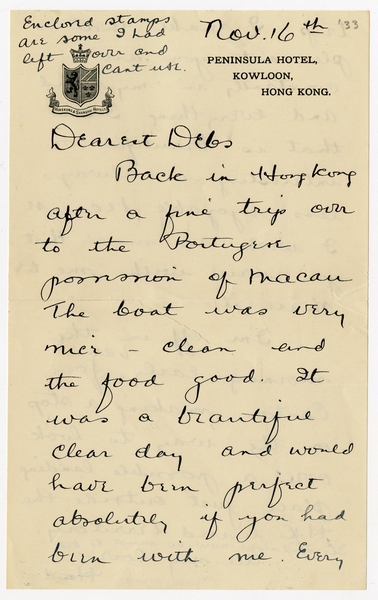 Enclosed stamps
are some I had
left over and
cant use.
Nov. 16th '33
PENINSULA HOTEL,
KOWLOON,
HONG KONG.
Dearest Debs
Back in Hongkong
after a fine trip over
to the Portugese
possession of Macau
The boat was very
nice - clean and
the food good. It
was a beautiful
clear day and would
have been perfect
absolutely if you had
been with me. Every